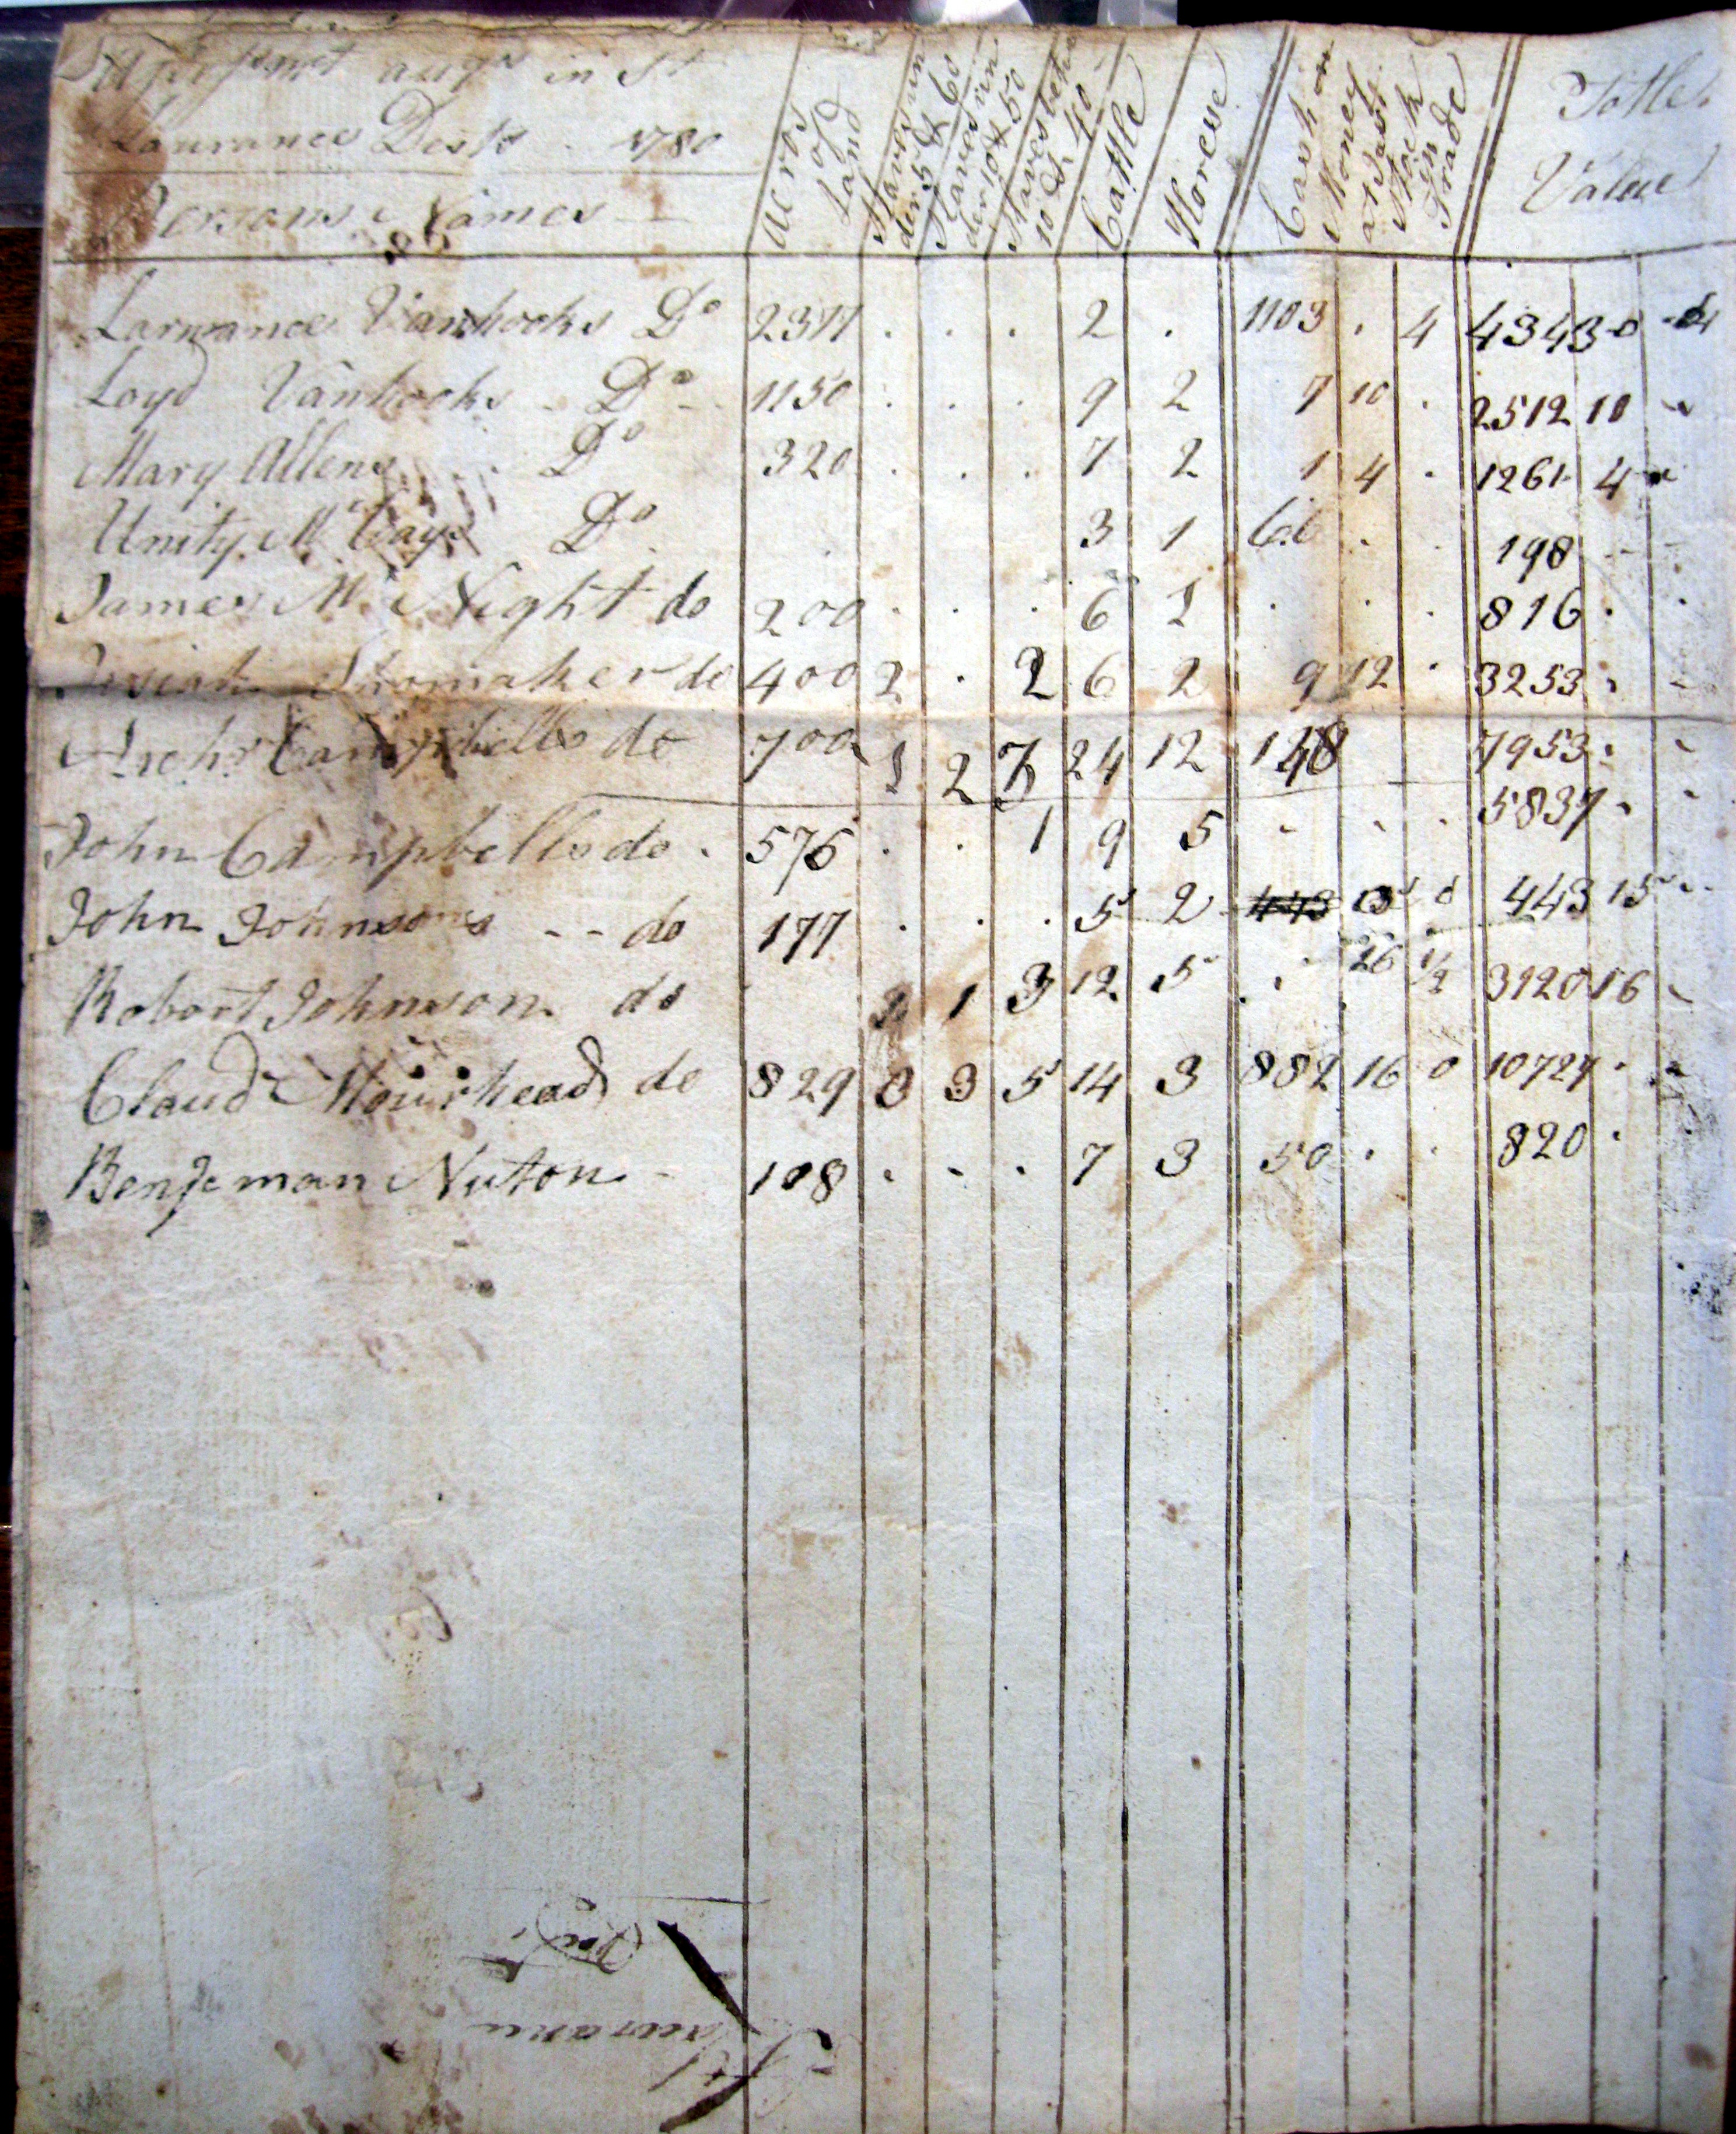 in St
Laurance Destt 1780
Persons Names
Acros of Land
Slaves un der 5 & 60
Slaves un der 10 & 50
Slaves betn 10 & 40
Cattle
Horese
Cash on
Money
at
Stock
in
Trade
Totle
Value
Larwance Vanhooks Do 2377 . . . 2 . 1103 . 4 4343 0 04
Loyd Vanhooks Do 1150 . . . 9 2 7 10 . 2512 10
Mary Allens Do 320 . . . 7 2 1 4 . 1261 4
Unity Mc Cays Do 3 1 66 . . 198
James Mc Night do 200 . . . 6 1 . . . 816
Shomaker do 400 2 . 2 6 2 9 12 . 3253
Archr Campbells do 700 1 2 7 24 12 148 7953
John Campbells do . 576 . . 1 9 5 . . . 5837
John Johnsons -- do 177 . . . 5 2 443 15 0 443 15
Robart Johnson do 1 3 12 5 . 26 1/2 3120 16
Claud Mourhead do 829 3 3 5 14 3 882 16 0 10727
Benjeman Nuton - 108 . - . 7 3 50 . . 820
St
Laurance
Dist